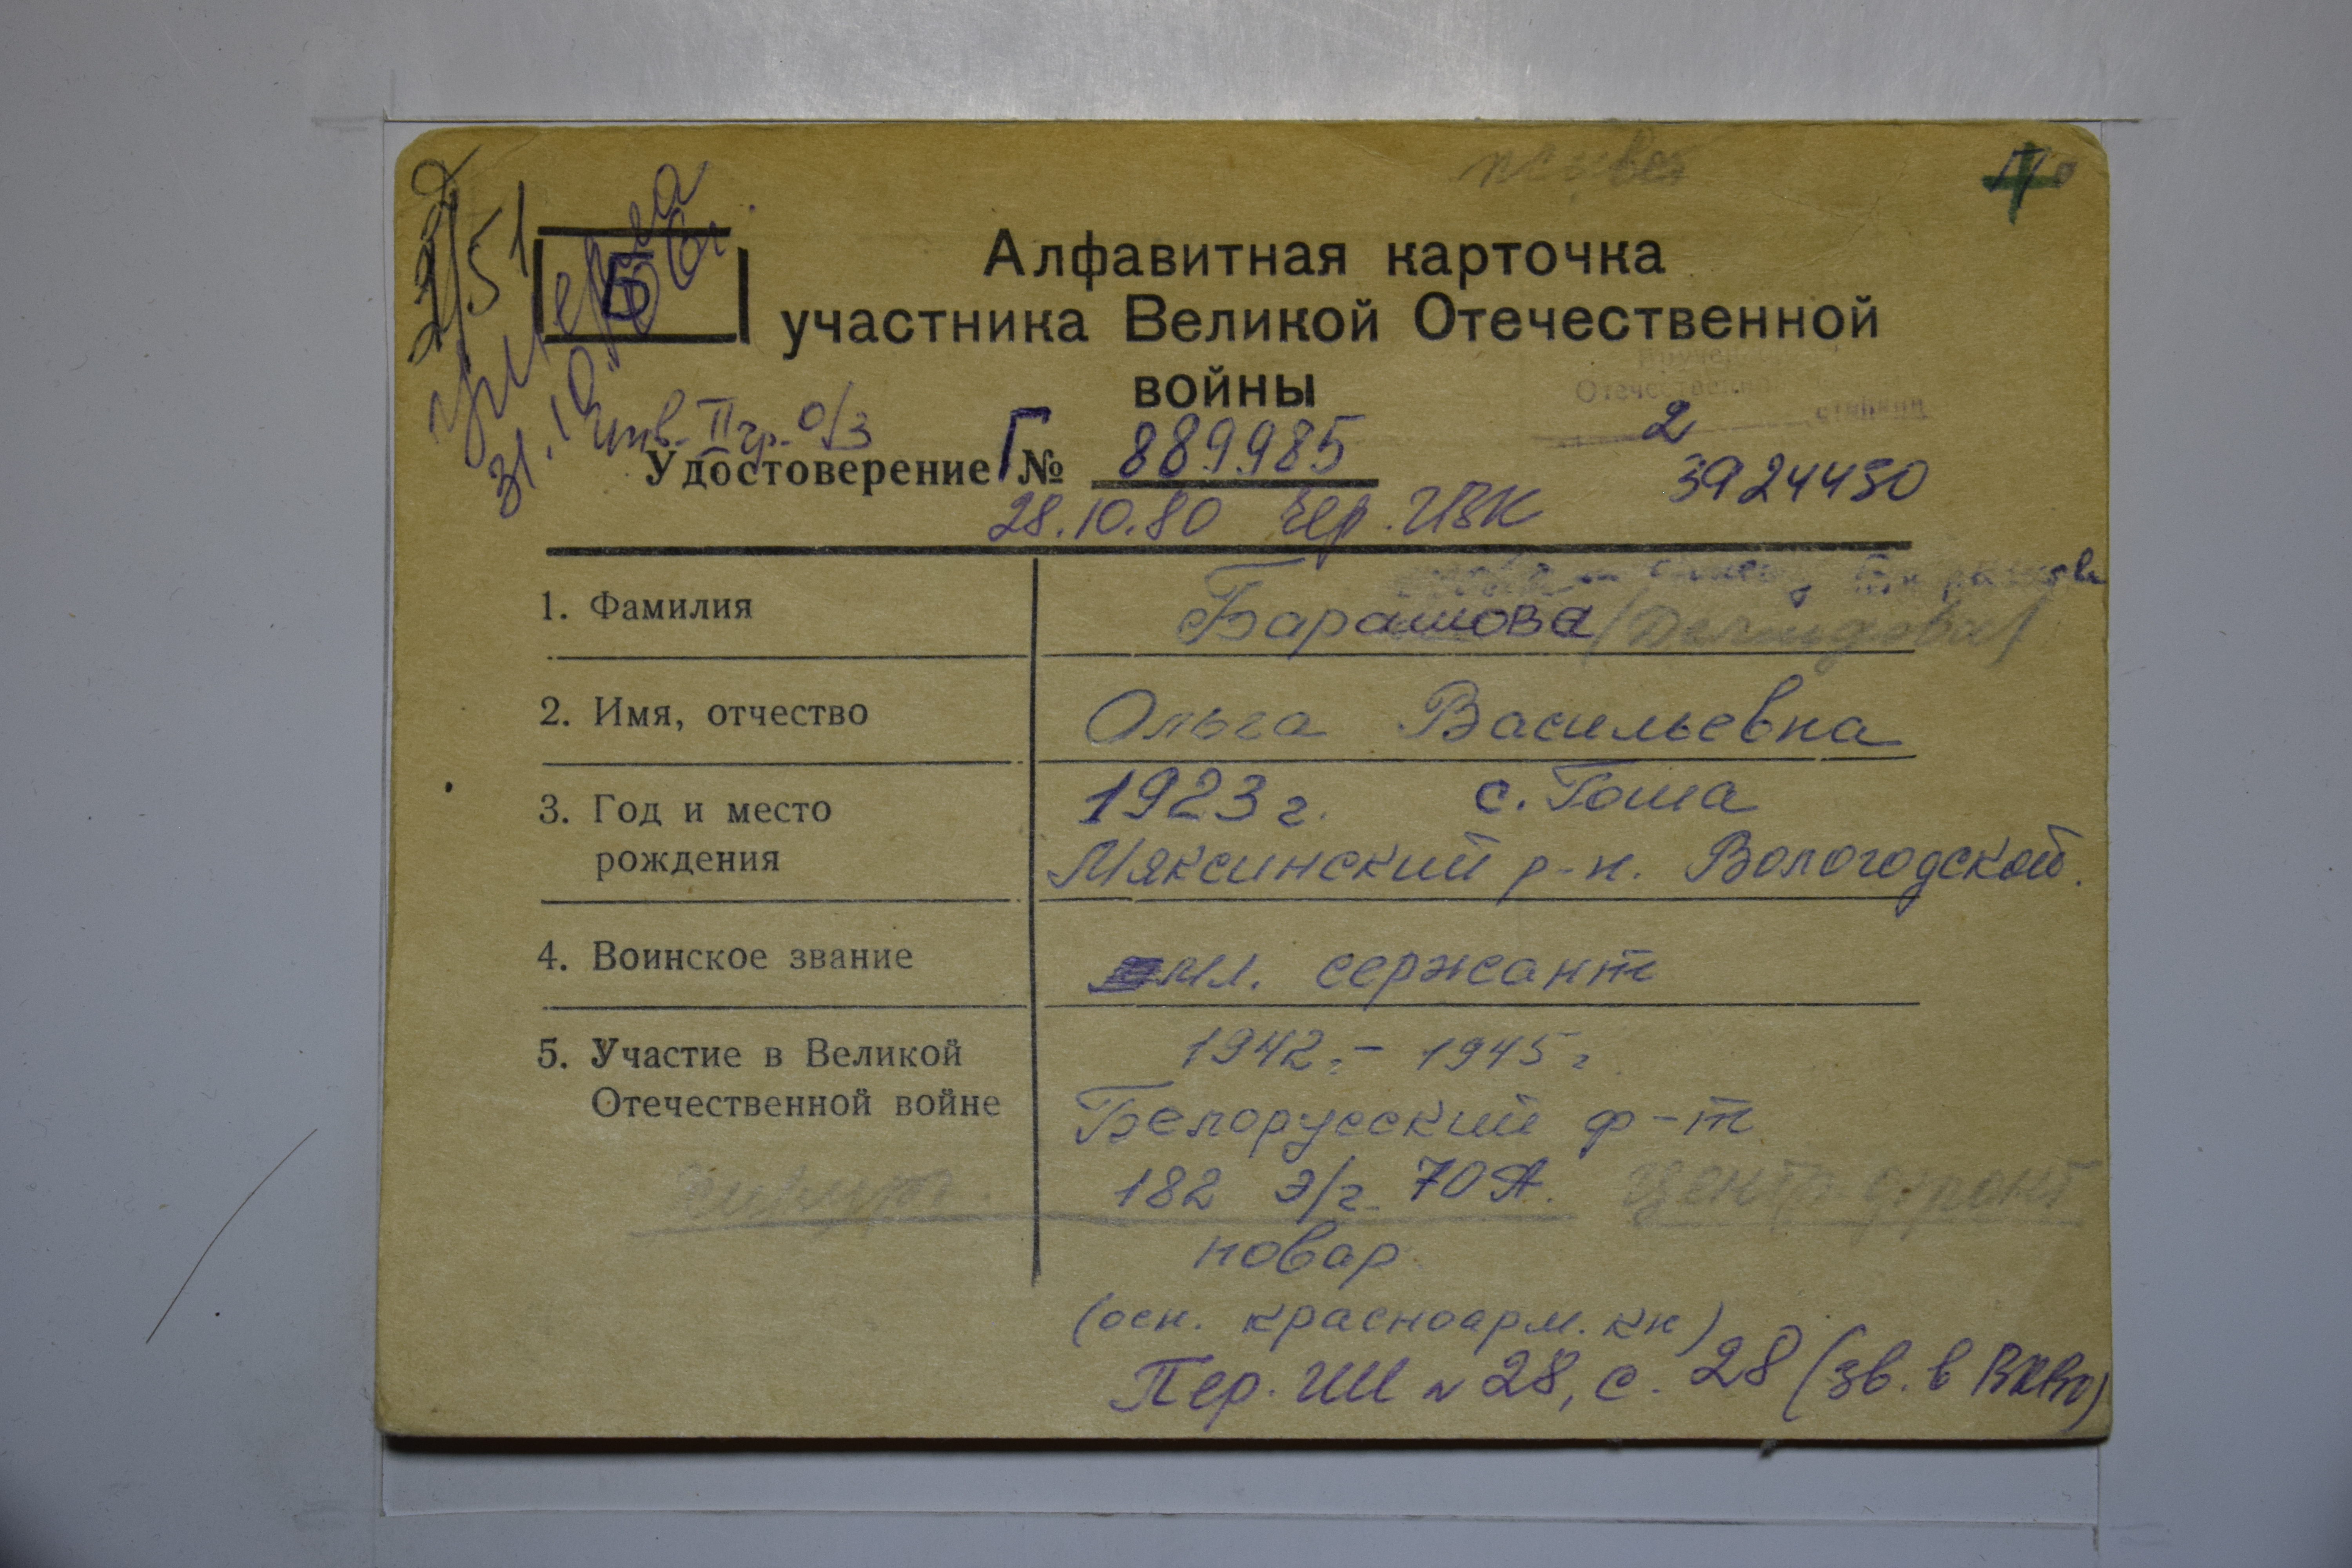 живет
2/51
умерла
31.10.06г.
Б
Алфавитная карточка
участника Великой Отечественной
войны
инв. II гр. о/з
Удостоверение Г № 889985
2
3924450
28.10.80 Чер. ГВК
1. Фамилия Барашова (Демидова)
2. Имя, отчество Ольга Васильевна
3. Год и место 1923 г. с. Гоша
рождения Мяксинский р-н. Вологодской.
4. Воинское звание мл. сержант
5. Участие в Великой 1942г - 1945 г
Отечественной войне Белорусский ф-т
182 э/г. 70 А. Центр. фронт
повар
(осн. красноарм. кн)
Пер. ШИ № 28, с. 28 (зв. в ВКВо)